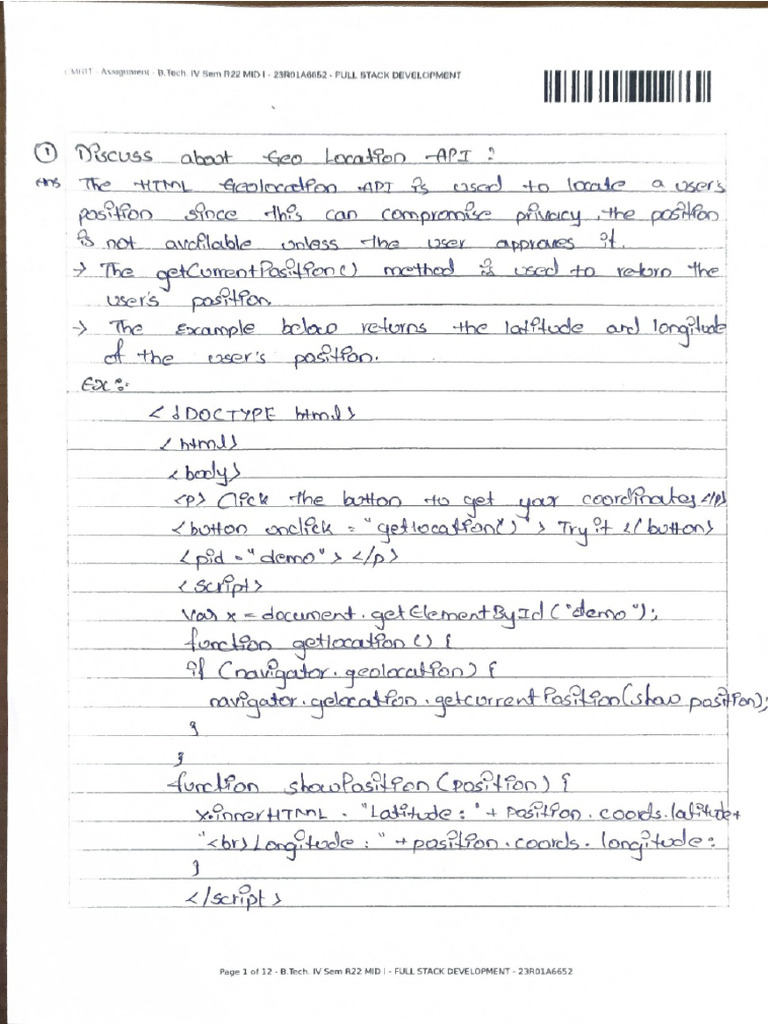 CMRIT - Assignment - B.Tech. IV Sem R22 MID I - 23R01A6652 - FULL STACK DEVELOPMENT
① Discuss about Geo Location API :
Ans The HTML Geolocation API is used to locate a user's
position since this can compromise privacy, the position
is not available unless the user approves it.
→ The getCurrentPosition() method is used to return the
user's position.
→ The Example below returns the latitude and longitude
of the user's position.
Ex :-
<!DOCTYPE html>
<html>
<body>
<p> Click the button to get your coordinates </p>
<button onclick = "getlocation()"> Try it </button>
<pid = "demo"> </p>
<script>
var x = document.getElementById("demo");
function getlocation() {
if (navigator.geolocation) {
navigator.gelocation.getcurrentPosition(show position);
}
}
function showPosition(position) {
x.innerHTML = "Latitude : " + position.coords.latitude +
"<br> Longitude : " + position.coords.longitude;
}
</script>
Page 1 of 12 - B.Tech. IV Sem R22 MID I - FULL STACK DEVELOPMENT - 23R01A6652